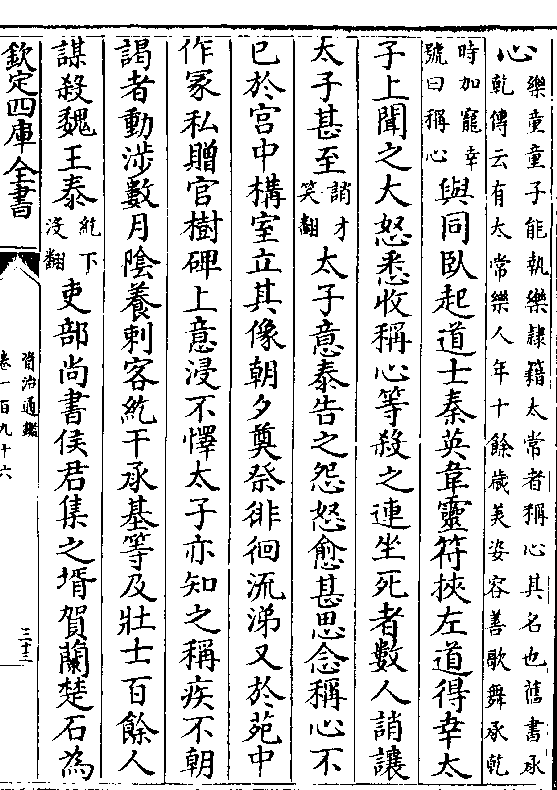 心樂童童子能執樂隸籍太常者稱心其名也舊書承
乾傳云有太常樂人年十餘歲美姿容善歌舞承乾
時加寵幸
號曰稱心與同臥起道士秦英韋靈符挾左道得幸太
子上聞之大怒悉收稱心等殺之連坐死者數人誚讓
太子甚至誚才
笑翻太子意泰告之怨怒愈甚思念稱心不
已於宫中構室立其像朝夕奠祭徘徊流涕又於苑中
作冢私贈官樹碑上意浸不懌太子亦知之稱疾不朝
謁者動涉數月陰養刺客紇干承基等及壯士百餘人
謀殺魏王泰紇下
没翻吏部尚書侯君集之壻賀蘭楚石為
欽定四庫全書
資治通鑑
卷一百九十六
三十三